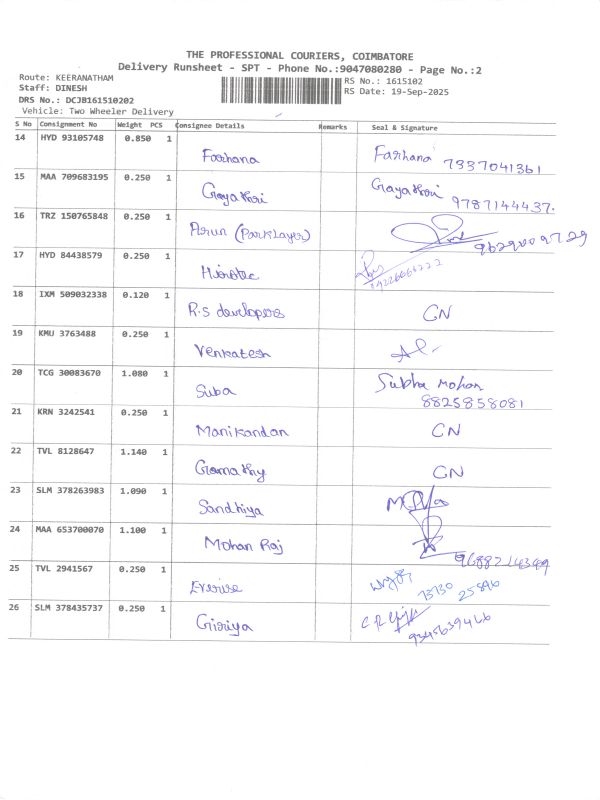 THE PROFESSIONAL COURIERS, COIMBATORE
Delivery Runsheet - SPT - Phone No.:9047080280 - Page No.:2
Route: KEERANATHAM RS No.: 1615102
Staff: DINESH RS Date: 19-Sep-2025
DRS No.: DCJB161510202
Vehicle: Two Wheeler Delivery
S No Consignment No Weight PCS Consignee Details Remarks Seal & Signature
14 HYD 93105748 0.850 1
Farhana Farhana 7337041361
15 MAA 709683195 0.250 1
Gayathri Gayathri 9787144437.
16 TRZ 150765848 0.250 1
Arun (Parkslayer) 9629009729
17 HYD 84438579 0.250 1
18 IXM 509032338 0.120 1
R.S developers CN
19 KMU 3763488 0.250 1
Venkatesh
20 TCG 30083670 1.080 1
Suba Subha Mohan
8825858081
21 KRN 3242541 0.250 1
Manikandan CN
22 TVL 8128647 1.140 1
Gomathy CN
23 SLM 378263983 1.090 1
Sandhiya
24 MAA 653700070 1.100 1
Mohan Raj
25 TVL 2941567 0.250 1
73730
25896
26 SLM 378435737 0.250 1
Giriya
9345639466